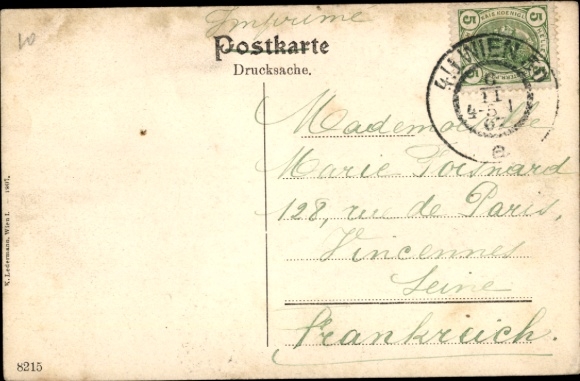 10
Imprimé
Postkarte
Drucksache.
5 5
4/1 WIEN
6
II
4-5
07
e
Mademoiselle
Marie Poisnard
128, rue de Paris,
Vincennes
Seine
Frankreich.
K. Ledermann, Wien I. 1907.
8215